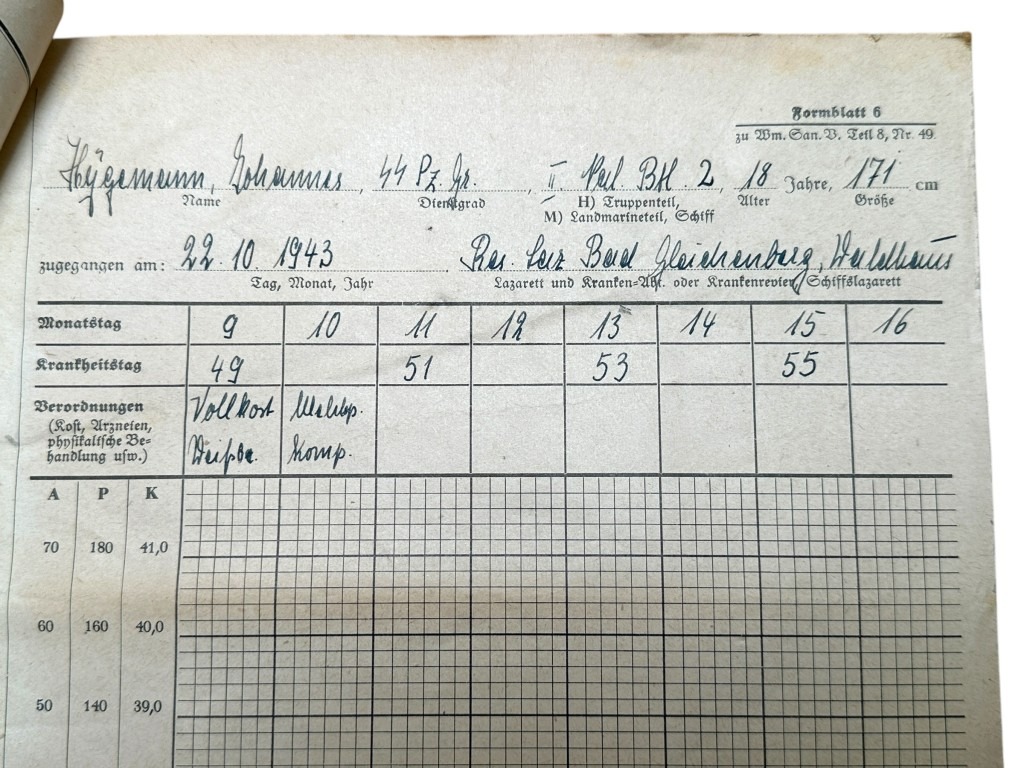 Formblatt 6
zu Wm. San. V. Teil 8, Nr. 49.
Hügemann, Johannes, 44 Pz. Gr., II. BH. 2, 18 Jahre, 171 cm
Name Dienstgrad H) Truppenteil, Alter Größe
M) Landmarineteil, Schiff
zugegangen am: 22. 10. 1943 Res. Laz Bad Gleichenberg, Waldhaus
Tag, Monat, Jahr Lazarett und Kranken-Abt. oder Krankenrevier, Schiffslazarett
Monatstag 9 10 11 12 13 14 15 16
Krankheitstag 49 51 53 55
Verordnungen Vollkost
(Kost, Arzneien,
physikalische Be- Komp.
handlung usw.)
A P K
70 180 41,0
60 160 40,0
50 140 39,0